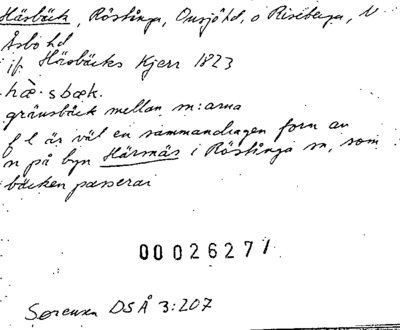 Härsbäck, Röstånga, Onsjöhd, o Riseberga, N
Åsbo hd
jf Härsbäcks Kjerr 1823
hæ̀·sbæk.
gränsbäck mellan sn:arna
f l är väl en sammandragen form av
n på byn Härsnäs i Röstånga sn, som
bäcken passerar
00026277
Sørensen DSÅ 3:207